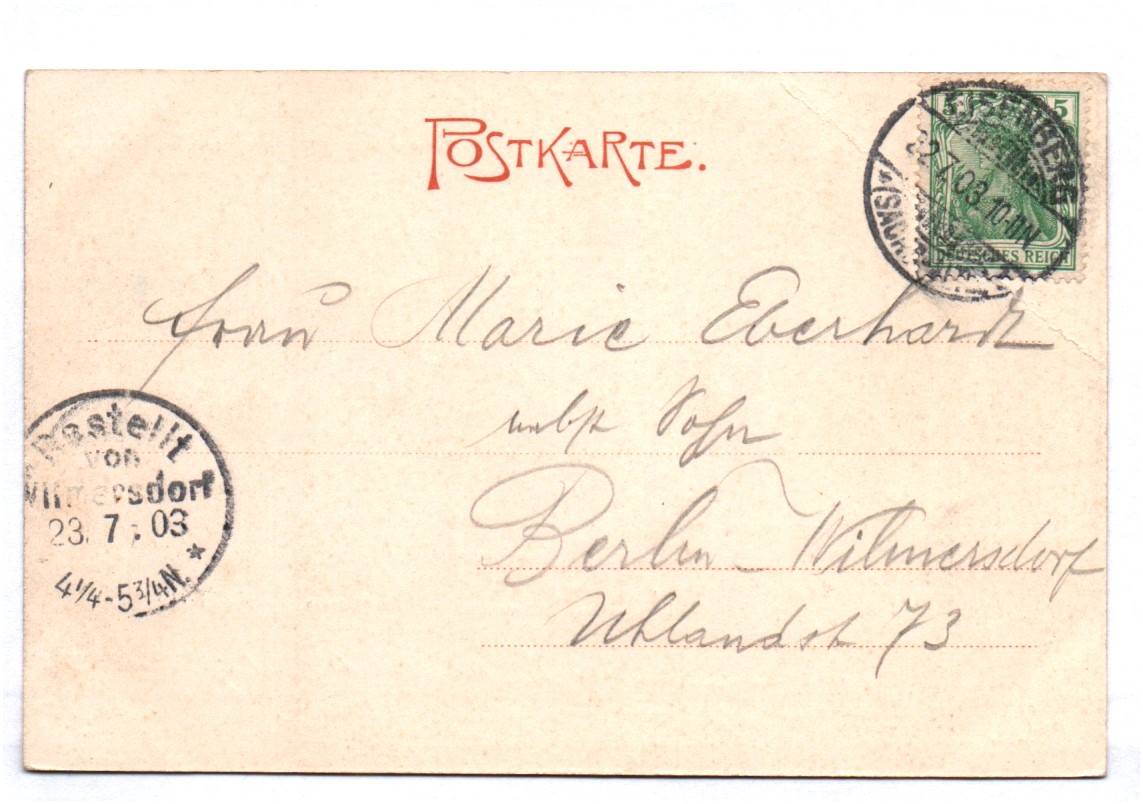 POSTKARTE.
5 5
EISENBERG
22.7.03 10-11N
DEUTSCHES REICH
Frau Marie Eberhardt
nebst Sohn
Berlin - Wilmersdorf
Uhlandst 73
Bestellt
von
Wilmersdorf
23. 7 . 03
4 1/4-5 3/4N.